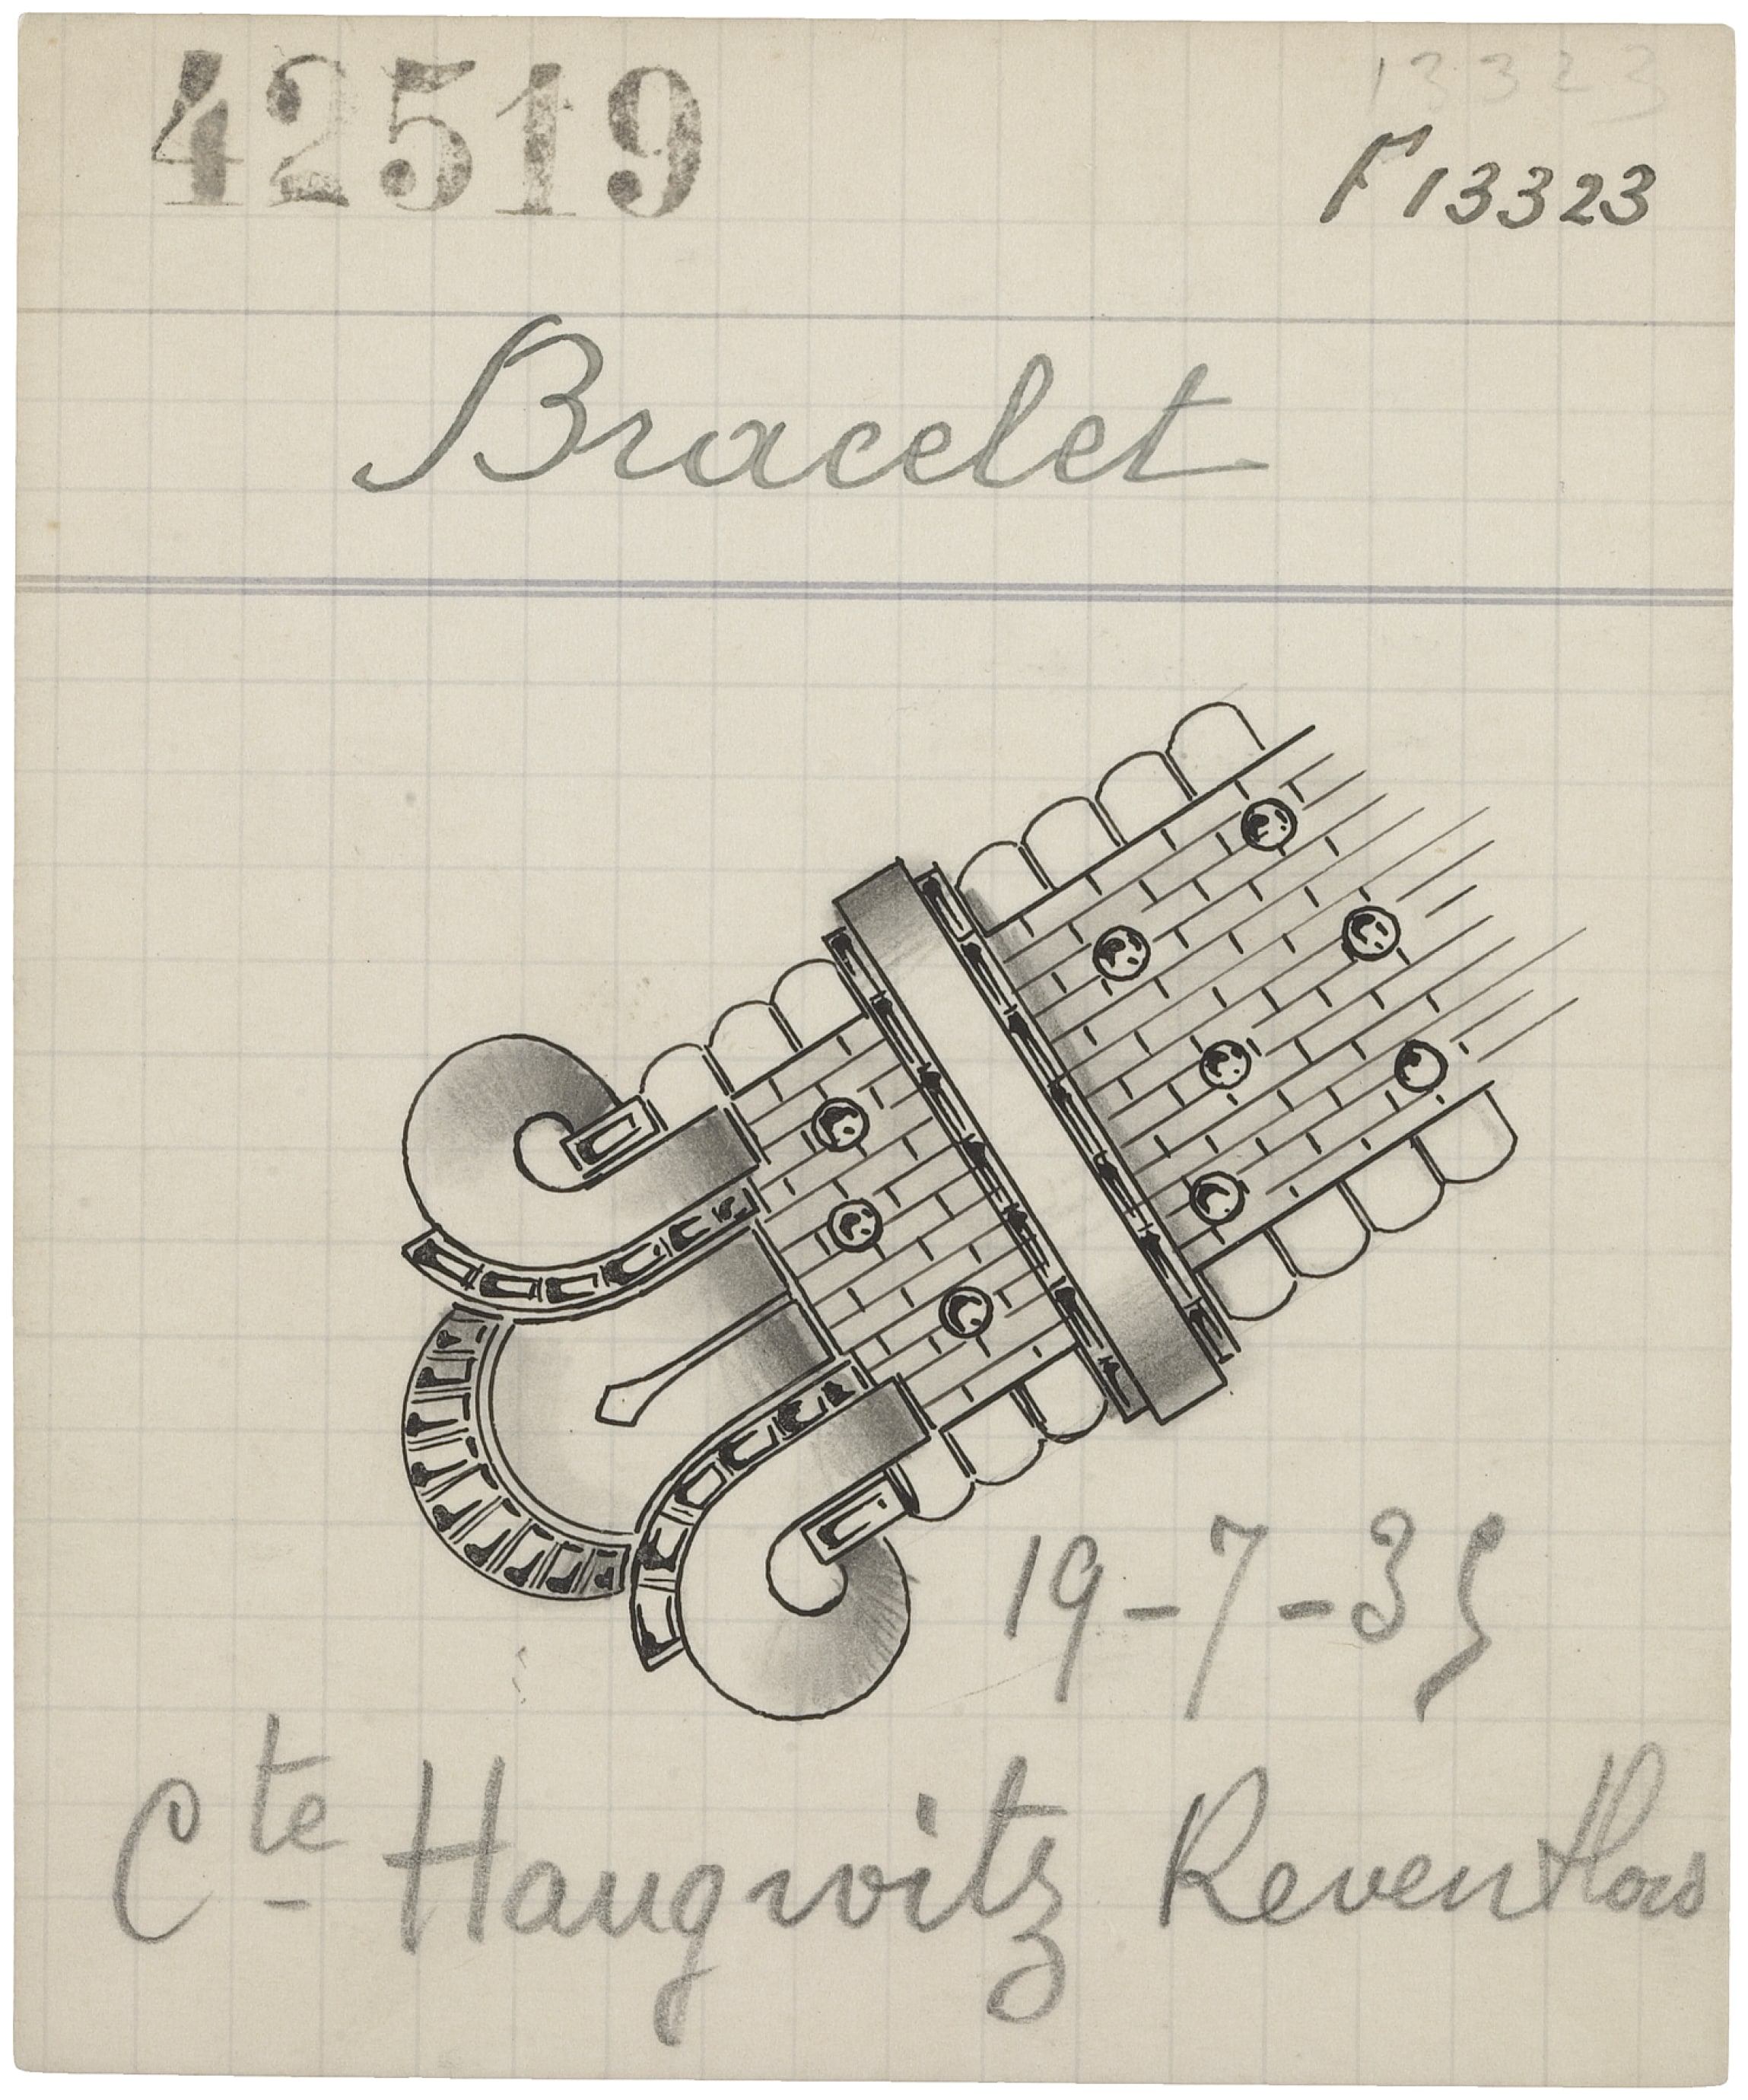 42519
13323
F13323
Bracelet
19-7-35
Cte Haugwitz Reventlow